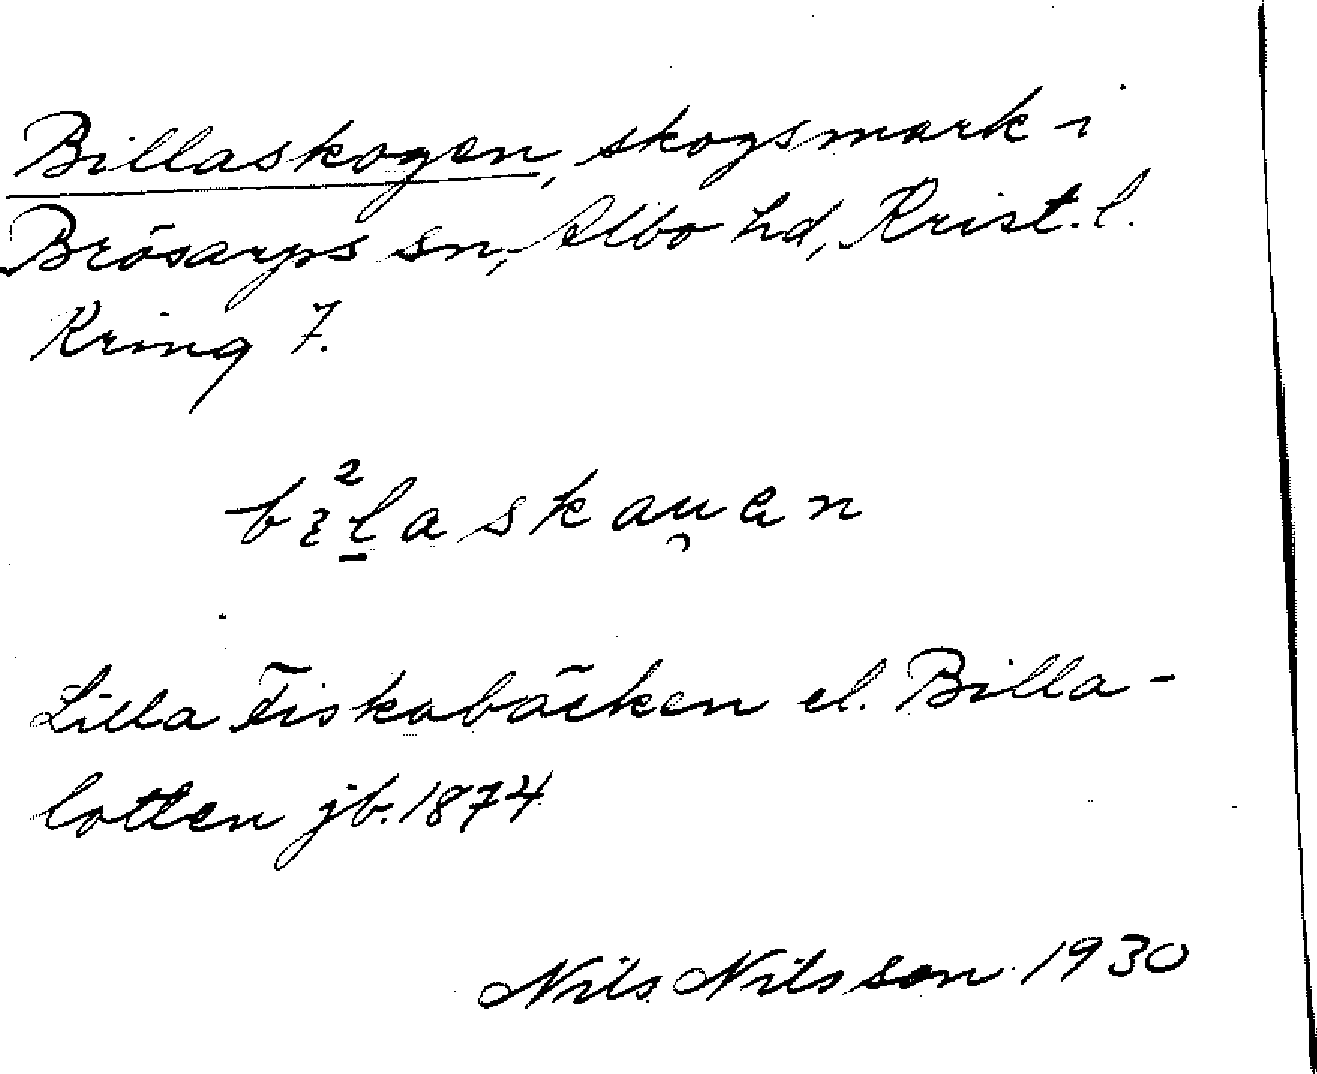 Billaskogen, skogsmark i
Brösarps sn, Albo hd, Krist. l.
Kring 7.
bɪ²l̠askau̯ən
Lilla Fiskabäcken el. Billa-
lotten jb. 1874
Nils Nilsson 1930